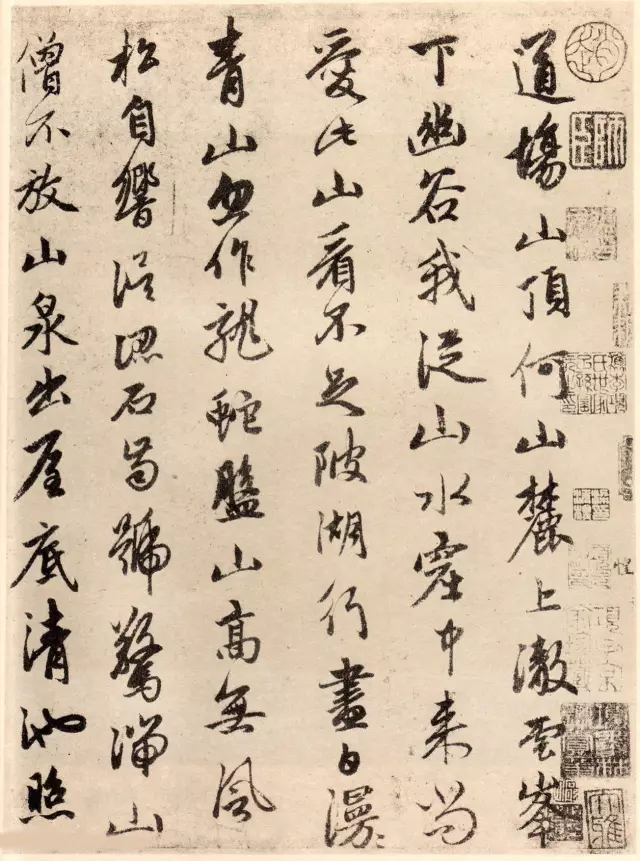 道場山頂何山麓上澈雲峯
下幽谷我従山水窟中来尚
愛此山看不足陂湖行盡白漫〻
青山忽作龍蛇盤山高無風
松自響誤認石齒號驚湍山
僧不放山泉出屋底清池照